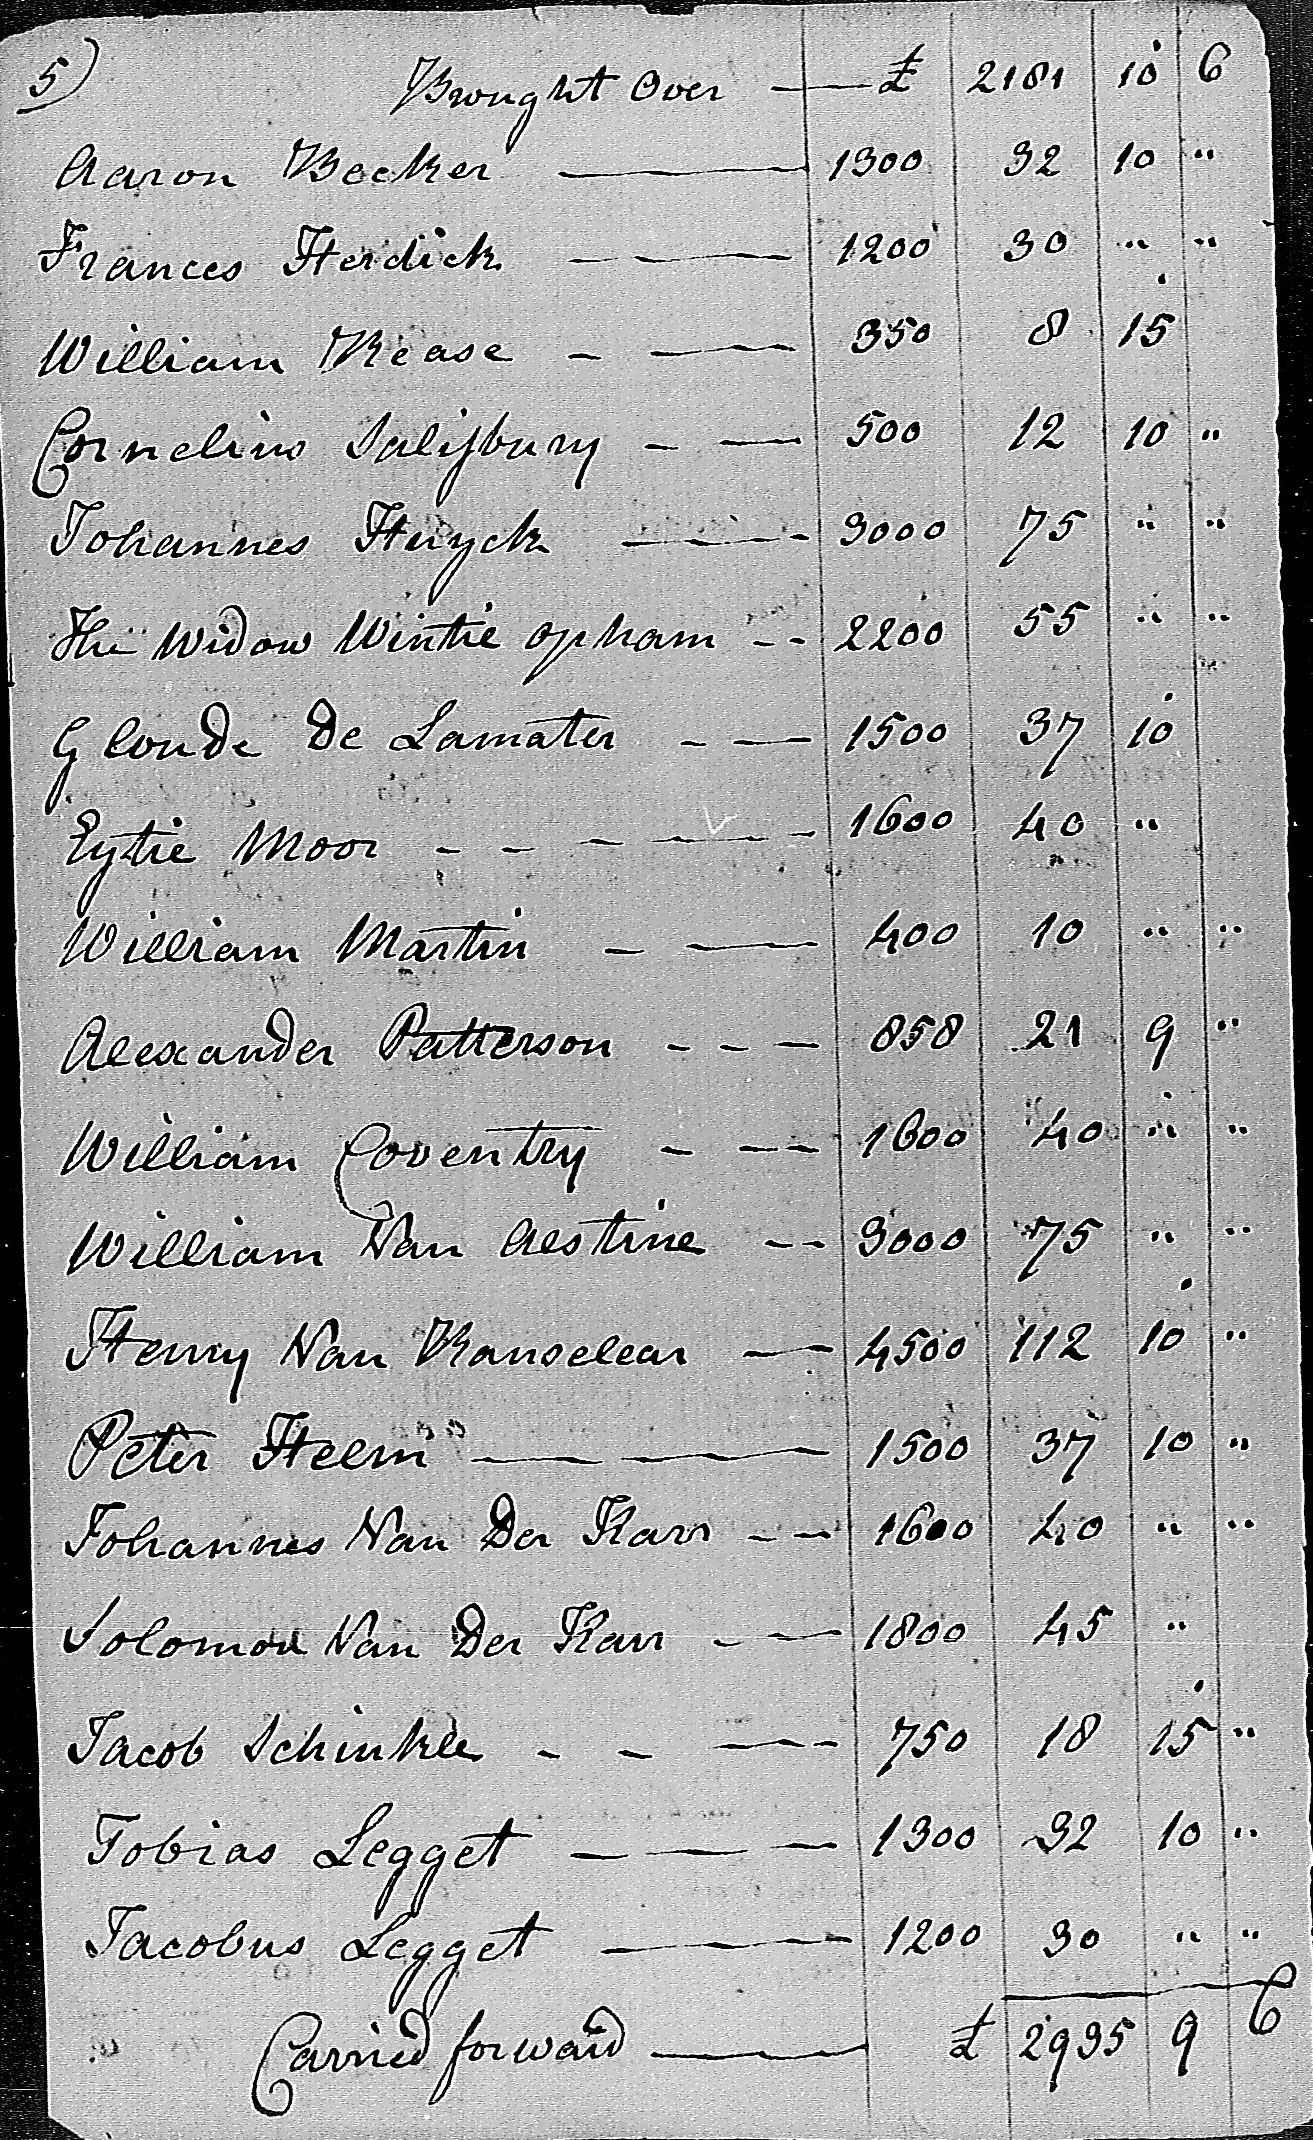 5) Brought Over — £ 2181 10 6
Aaron Becker — 1300 32 10 "
Frances Herdick — 1200 30 " "
William Rease — 350 8 15
Cornelius Salisbury — 500 12 10 "
Johannes Huyck — 3000 75 " "
The Widow Wintie opham — 2200 55 " "
Glonde De Lamater — 1500 37 10
Eytie Moor — 1600 40 "
William Martin — 400 10 " "
Alexander Patterson — 858 21 9 "
William Coventry — 1600 40 " "
William Van Alstine — 3000 75 " "
Henry Van Ranselear — 4500 112 10 "
Peter Heem — 1500 37 10 "
Johannes Van Der Karr — 1600 40 " "
Solomon Van Der Karr — 1800 45 "
Jacob Schinkle — 750 18 15 "
Tobias Legget — 1300 32 10 "
Jacobus Legget — 1200 30 " "
Carried forward — £ 2935 9 6